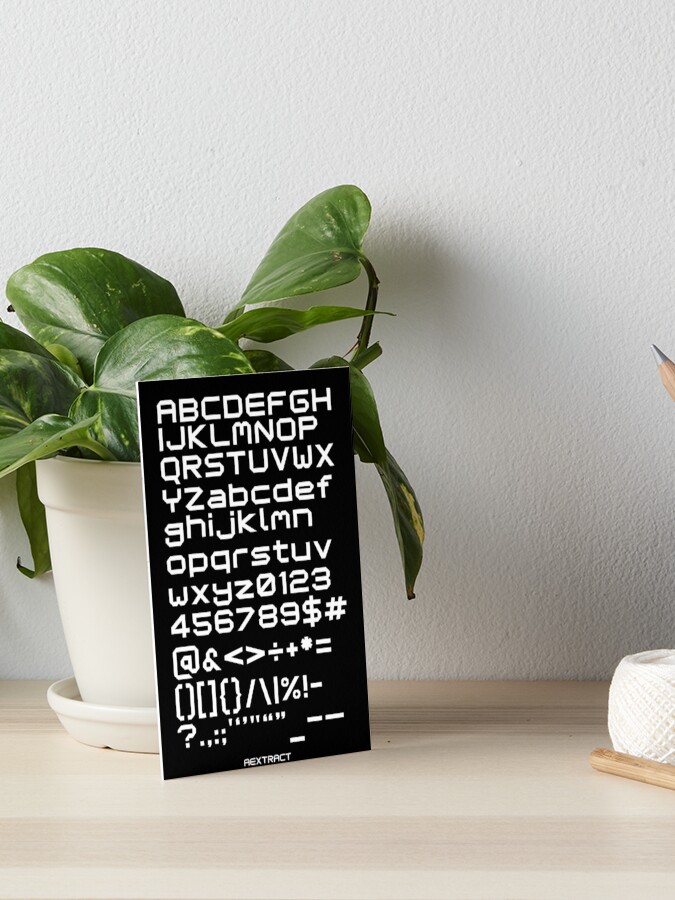 ABCDEFGH
IJKLMNOP
QRSTUVWX
YZabcdef
ghijklmn
opqrstuv
wxyz0123
456789$#
@&<>÷+*=
()[]{}/\|%!-
?.,:;'‘’"“”_–—
AEXTRACT